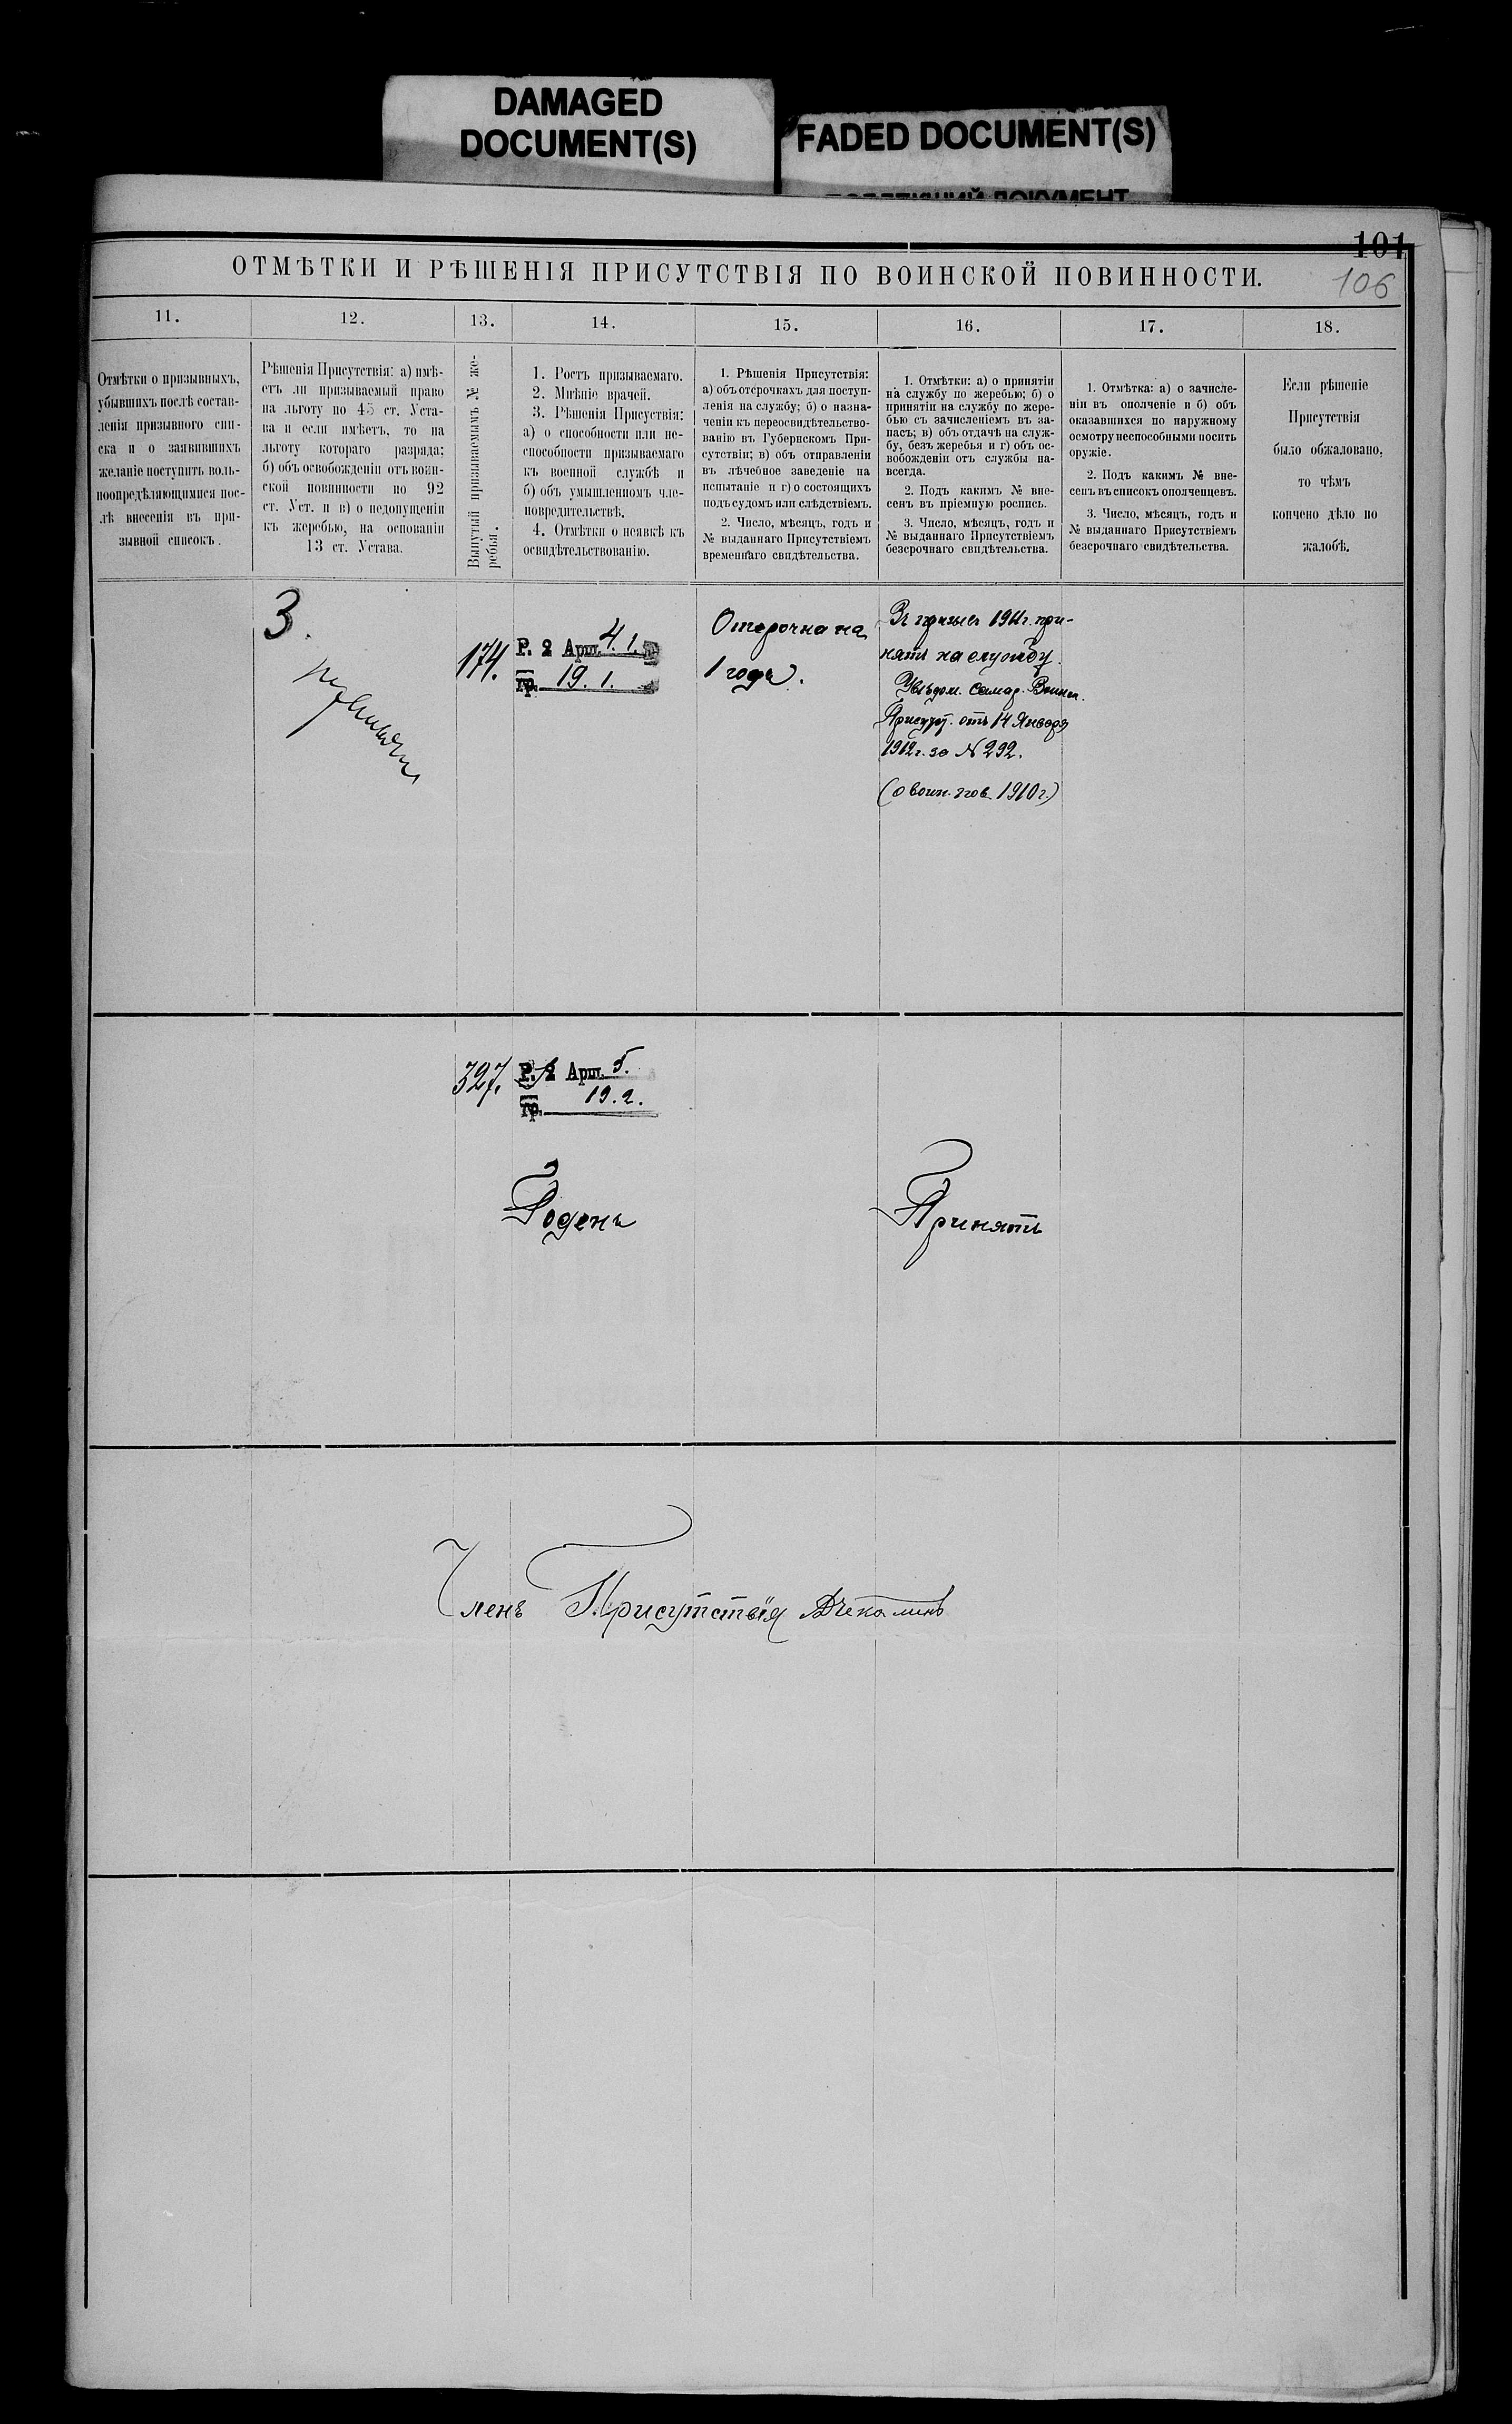 DAMAGED
DOCUMENT(S)
FADED DOCUMENT(S)
101
106
ОТМѢТКИ И РѢШЕНІЯ ПРИСУТСТВІЯ ПО ВОИНСКОЙ ПОВИННОСТИ.
11.
12.
13.
14.
15.
16.
17.
18.
Отмѣтки о призывныхъ,
убывшихъ послѣ состав-
ленія призывного спи-
ска и о заявившихъ
желаніе поступить воль-
ноопредѣляющимися пос-
лѣ внесенія въ при-
зывной списокъ.
Рѣшенія Присутствія: а) имѣ-
етъ ли призываемый право
на льготу по 45 ст. Уста-
ва и если имѣетъ, то на
льготу котораго разряда;
б) объ освобожденіи отъ воин-
ской повинности по 92
ст. Уст. и в) о недопущеніи
къ жеребью, на основаніи
13 ст. Устава.
Вынутый призываемымъ № же-
ребья.
1. Ростъ призываемаго.
2. Мнѣніе врачей.
3. Рѣшенія Присуствія:
а) о способности или не-
способности призываемаго
къ военной службѣ и
б) объ умышленномъ чле-
новредительствѣ.
4. Отмѣтки о неявкѣ къ
освидѣтельствованію.
1. Рѣшенія Присутствія:
а) объ отсрочкахъ для поступ-
ленія на службу; б) о назна-
ченіи къ переосвидѣтельство-
ванію въ Губернскомъ При-
сутствіи; в) объ отправленіи
въ лѣчебное заведеніе на
испытаніе и г) о состоящихъ
подъ судомъ или слѣдствіемъ.
2. Число, мѣсяцъ, годъ и
№ выданнаго Присутствіемъ
временнаго свидѣтельства.
1. Отмѣтки: а) о принятіи
на службу по жеребью; б) о
принятіи на службу по жере-
бью съ зачисленіемъ въ за-
пасъ; в) объ отдачѣ на служ-
бу, безъ жеребья и г) объ ос-
вобожденіи отъ службы на-
всегда.
2. Подъ какимъ № вне-
сенъ въ пріемную роспись.
3. Число, мѣсяцъ, годъ и
№ выданнаго Присутствіемъ
безсрочнаго свидѣтельства.
1. Отмѣтка: а) о зачисле-
ніи въ ополченіе и б) объ
оказавшихся по наружному
осмотру неспособными носить
оружіе.
2. Подъ какимъ № вне-
сенъ въ списокъ ополченцевъ.
3. Число, мѣсяцъ, годъ и
№ выданнаго Присутствіемъ
безсрочнаго свидѣтельства.
Если рѣшеніе
Присутствія
было обжаловано,
то чѣмъ
кончено дѣло по
жалобѣ.
3.
174.
Р. 2 Арш. 4. 1.
гр. 19. 1.
Отсрочка на
1 годъ.
Въ призывъ 1911г. при-
нятъ на службу.
Увѣдом. Самар. Воинск.
Присутст. отъ 14 Января
1912г. за № 292.
(о воин. пов. 1910г.)
327.
Р. 2 Арш. 5.
гр. 19. 2.
Годенъ
Принятъ
Членъ Присутствія